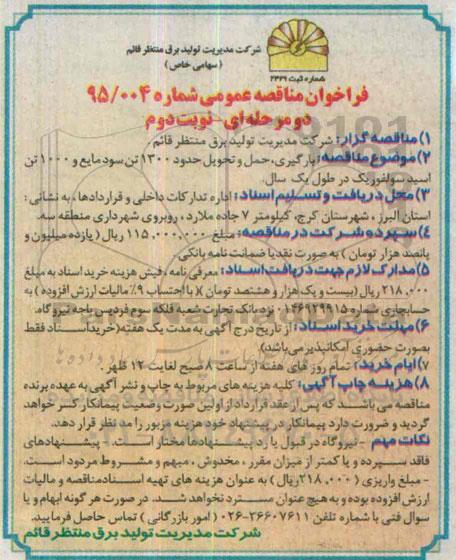 شرکت مدیریت تولید برق منتظر قائم
(سهامی خاص)
شماره ثبت ۲۳۲۹
فراخوان مناقصه عمومی شماره ۹۵/۰۰۴
دو مرحله ای - نوبت دوم
۱) مناقصه گزار: شرکت مدیریت تولید برق منتظر قائم
۲) موضوع مناقصه: بارگیری، حمل و تحویل حدود ۱۳۰۰ تن سود مایع و ۱۰۰۰ تن
اسید سولفوریک در طول یک سال.
۳) محل دریافت و تسلیم اسناد: اداره تدارکات داخلی و قراردادها، به نشانی:
استان البرز، شهرستان کرج، کیلومتر ۷ جاده ملارد، روبروی شهرداری منطقه سه.
۴) سپرده شرکت در مناقصه: مبلغ ۱۱۵,۰۰۰,۰۰۰ ریال (یازده میلیون و
پانصد هزار تومان) به صورت نقد یا ضمانت نامه بانکی
۵) مدارک لازم جهت دریافت اسناد: معرفی نامه، فیش هزینه خرید اسناد به مبلغ
۲۱۸,۰۰۰ ریال (بیست و یک هزار و هشتصد تومان) (با احتساب ۹٪ مالیات ارزش افزوده) به
حساب جاری شماره ۱۴۶۹۲۹۹۱۵ نزد بانک تجارت شعبه فلکه سوم فردیس باجه نیروگاه.
۶) مهلت خرید اسناد: از تاریخ درج آگهی به مدت یک هفته (خرید اسناد فقط
بصورت حضوری امکانپذیر می باشد).
۷) ایام خرید: تمام روز های هفته از ساعت ۸ صبح لغایت ۱۲ ظهر.
۸) هزینه چاپ آگهی: کلیه هزینه های مربوط به چاپ و نشر آگهی به عهده برنده
مناقصه می باشد که پس از عقد قرارداد از اولین صورت وضعیت پیمانکار کسر خواهد
گردید و ضرورت دارد پیمانکار در پیشنهاد خود هزینه مزبور را مد نظر قرار دهد.
نکات مهم - نیروگاه در قبول یا رد پیشنهادها مختار است. - پیشنهادهای
فاقد سپرده و یا کمتر از میزان مقرر، مخدوش، مبهم و مشروط مردود است.
- مبلغ واریزی (۲۱۸,۰۰۰ ریال) به عنوان هزینه های تهیه اسناد مناقصه و مالیات
ارزش افزوده بوده و به هیچ عنوان مسترد نخواهد شد. در صورت هر گونه ابهام و یا
سوال فنی با شماره تلفن ۳۶۶۰۷۶۱۱-۰۲۶ (امور بازرگانی) تماس حاصل فرمایید.
شرکت مدیریت تولید برق منتظر قائم